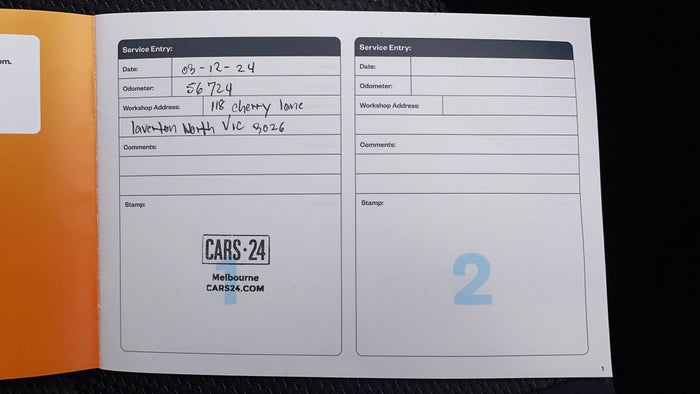 om.
Service Entry:
Date: 03-12-24
Odometer: 56724
Workshop Address: 118 cherry lane
laverton North Vic 3026
Comments:
Stamp:
CARS·24
1
Melbourne
CARS24.COM
Service Entry:
Date:
Odometer:
Workshop Address:
Comments:
Stamp:
2
1